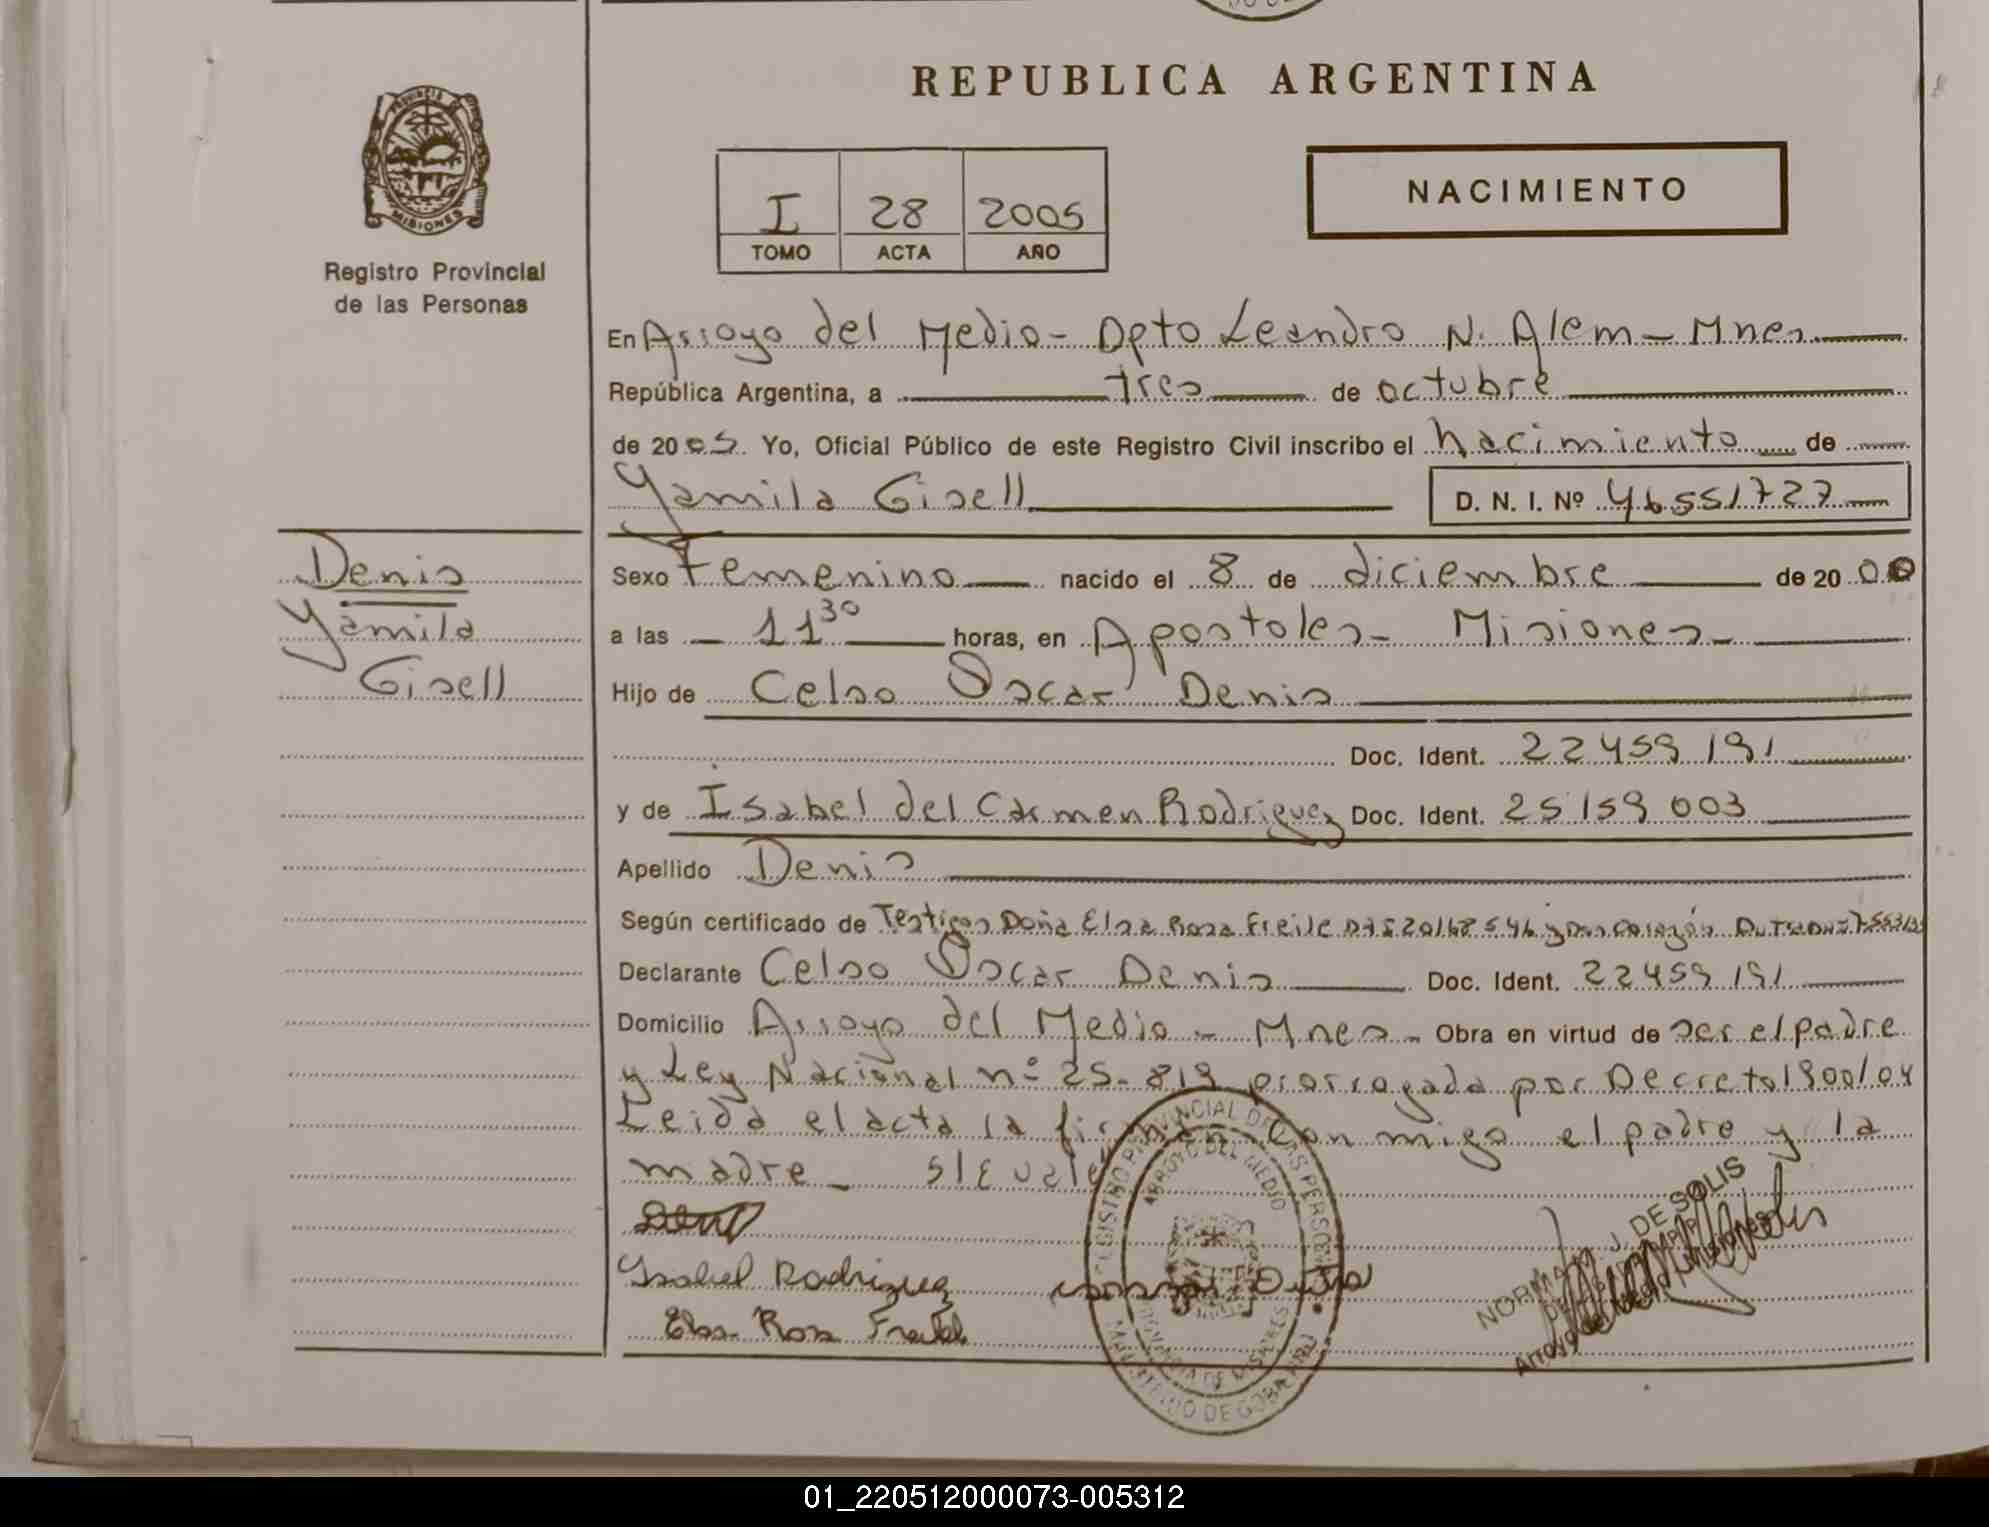 REPUBLICA ARGENTINA
PROVINCIA
MISIONES
Registro Provincial
de las Personas
I 28 2005
TOMO ACTA AÑO
NACIMIENTO
En Arroyo del Medio - Dpto Leandro N. Alem - Mnes
República Argentina, a tres de octubre
de 2005. Yo, Oficial Público de este Registro Civil inscribo el nacimiento de
Yamila Gisell D. N. I. Nº 46551727
Denis
Yamila
Gisell
Sexo Femenino nacido el 8 de diciembre de 2000
a las 11 30 horas, en Apostoles - Misiones -
Hijo de Celso Oscar Denis
Doc. Ident. 22459191
y de Isabel del Carmen Rodriguez Doc. Ident. 25159003
Apellido Denis
Según certificado de Testigos Doña Elsa Rosa Freile DNI 20168546 y Don Corazón Dutra DNI
Declarante Celso Oscar Denis Doc. Ident. 22459191
Domicilio Arroyo del Medio - Mnes - Obra en virtud de ser el padre
y Ley Nacional nº 25.819 prorrogada por Decreto 1900/04
Leida el acta la firman con migo el padre y la
madre - S/E vale
Isabel Rodriguez
Elsa Rosa
REGISTRO PROVINCIAL DE LAS PERSONAS
ARROYO DEL MEDIO
PROVINCIA DE MISIONES
MINISTERIO DE GOBIERNO
NORMA J. DE SOLIS
01_220512000073-005312